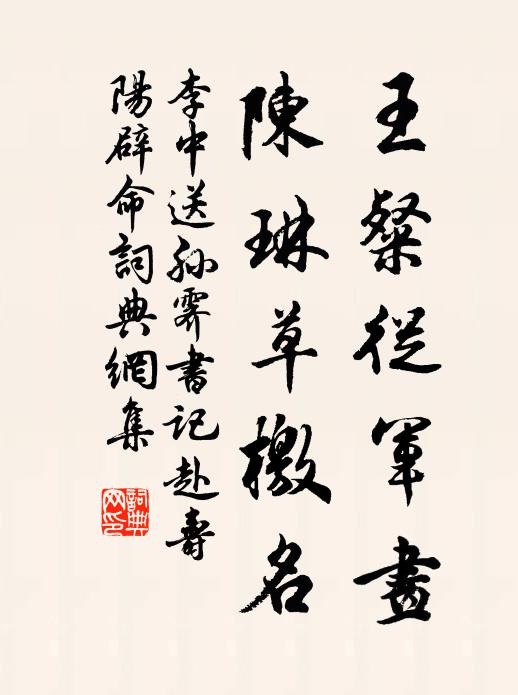 王粲從軍畫
陳琳草檄名
李中送孫霽書記赴壽
陽辟命詞典網集
詞典
网印